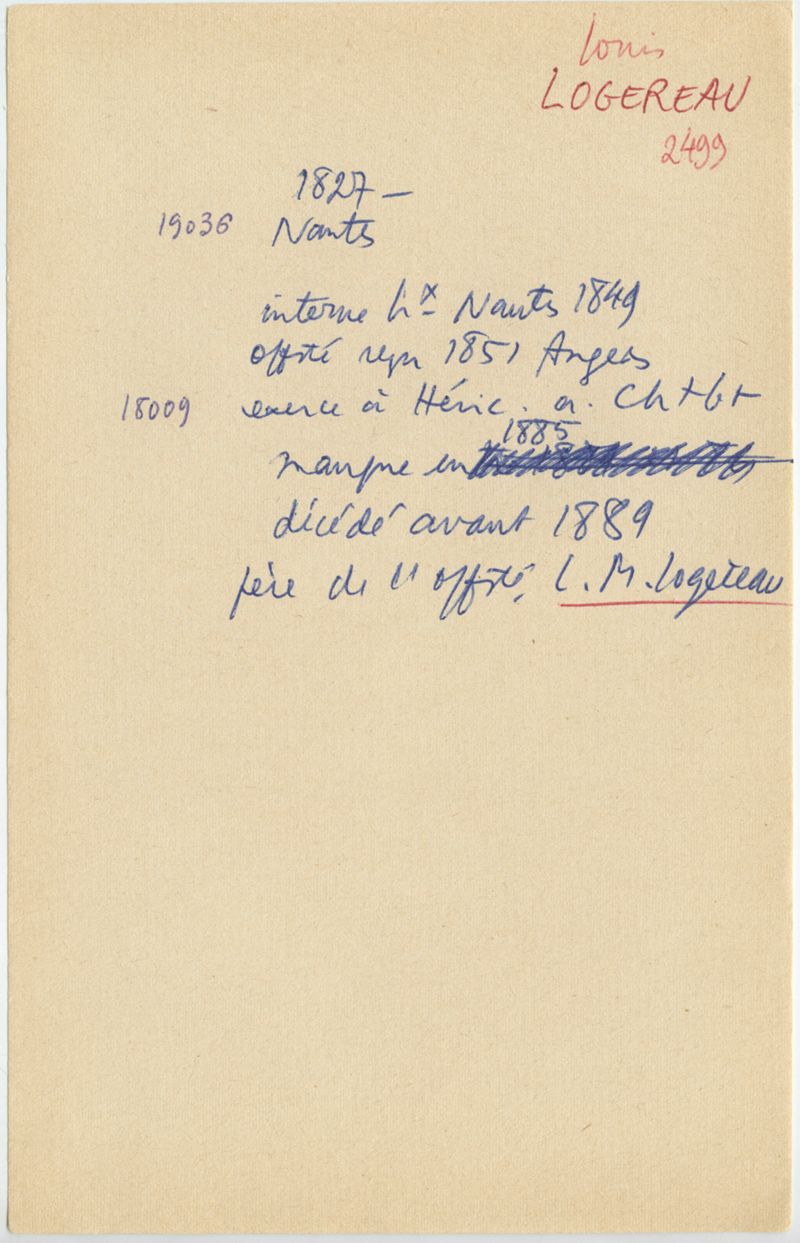 Louis
LOGEREAU
2499
1827 –
19036 Nantes
interne hx Nantes 1849
offité reçu 1851 Angers
18009 exerce à Héric. a. Chtbt
1885
manque en
décédé avant 1889
père de l'offité, L. M. Logereau